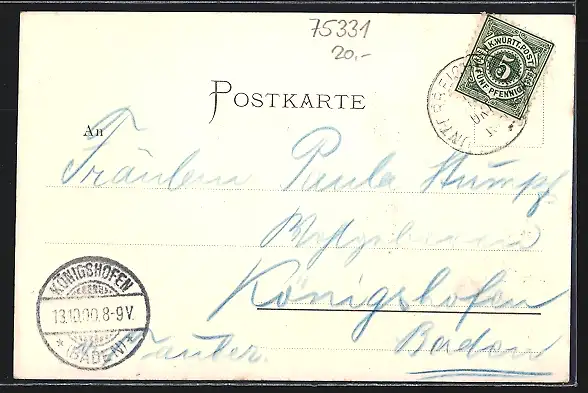 75331
20.-
K. WÜRTT. POST
5
FÜNF PFENNIG
POSTKARTE
An
Fräulein Paula Stumpf
Königshofen
KÖNIGSHOFEN
13.10.00. 8-9V.
* (BADEN) *
Tauber. Baden